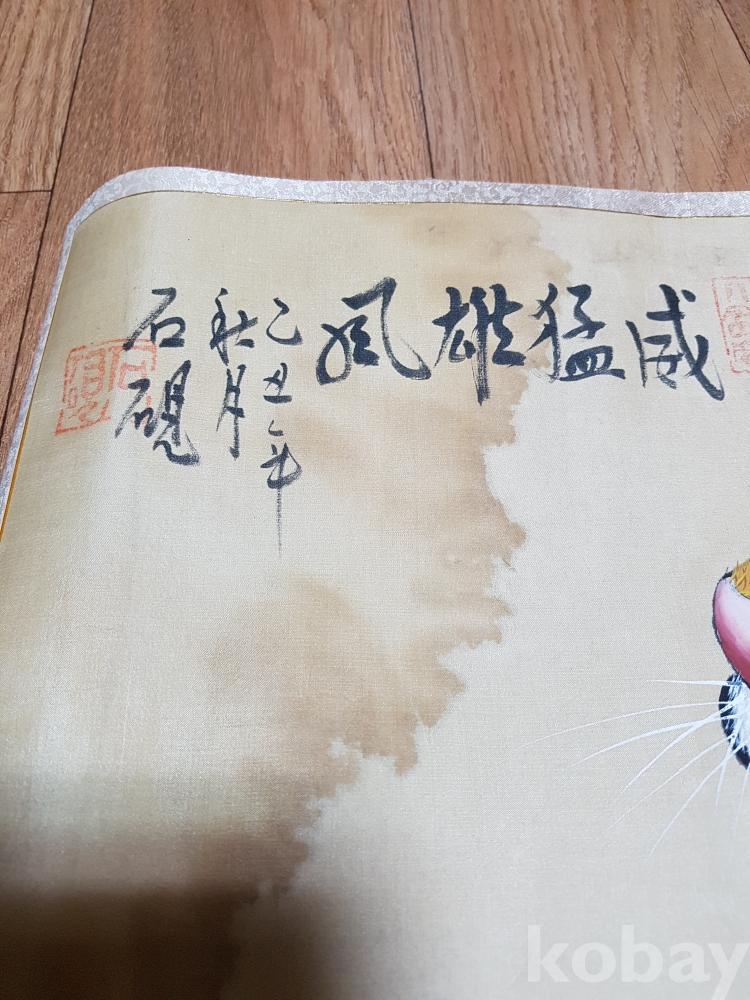 威猛雄風
乙丑年
秋月
石硯
kobay